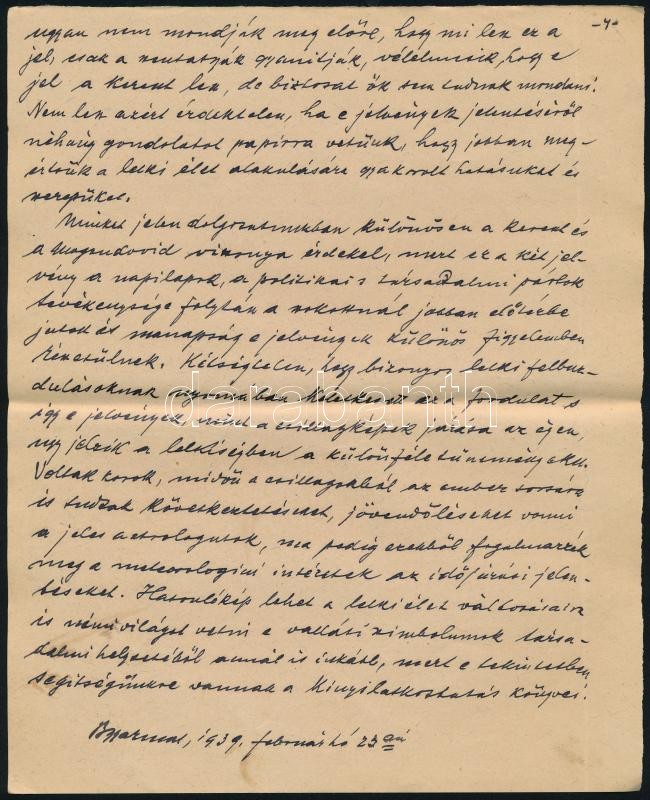 -4-
ugyan nem mondják meg előre, hogy mi lesz ez a
jel, csak a kutatják gyanítják, vélelmezik, hogy e
jel a kereszt lesz, de biztosat ők sem tudnak mondani.
Nem lesz azért érdektelen, ha e jelvények jelentéséről
néhány gondolatot papírra vetünk, hogy jobban meg-
értsük a lelki élet alakulására gyakorolt hatásukat és
szerepüket.
Minket jelen dolgozatunkban különösen a kereszt és
a Mogendovid viszonya érdekel, mert ez a két jel-
vény a napilapok, a politikai s társadalmi pártok
tevékenysége folytán a szokottnál jobban előtérbe
jutott és manapság e jelvények különös figyelemben
részesülnek. Kétségtelen, hogy bizonyos lelki felbuz-
dulásoknak nyomában következett ez a fordulat s
így e jelvények, mint a csillagképek járása az égen,
úgy jelzik a lelkiségben a különféle tüneményeket.
Voltak korok, midőn a csillagokból az ember sorsára
is tudtak következtetéseket, jövendöléseket vonni
a jeles astrologusok, ma pedig ezekből fogalmazzák
meg a meteorologiai intézetek az időjárási jelen-
téseket. Hasonlókép lehet a lelki élet változásaira
is némi világot vetni e vallási szimbolumok társa-
dalmi helyzetéből annál is inkább, mert e tekintetben
segítségünkre vannak a Kinyilatkoztatás könyvei.
1939. február hó 23 án
darabanth